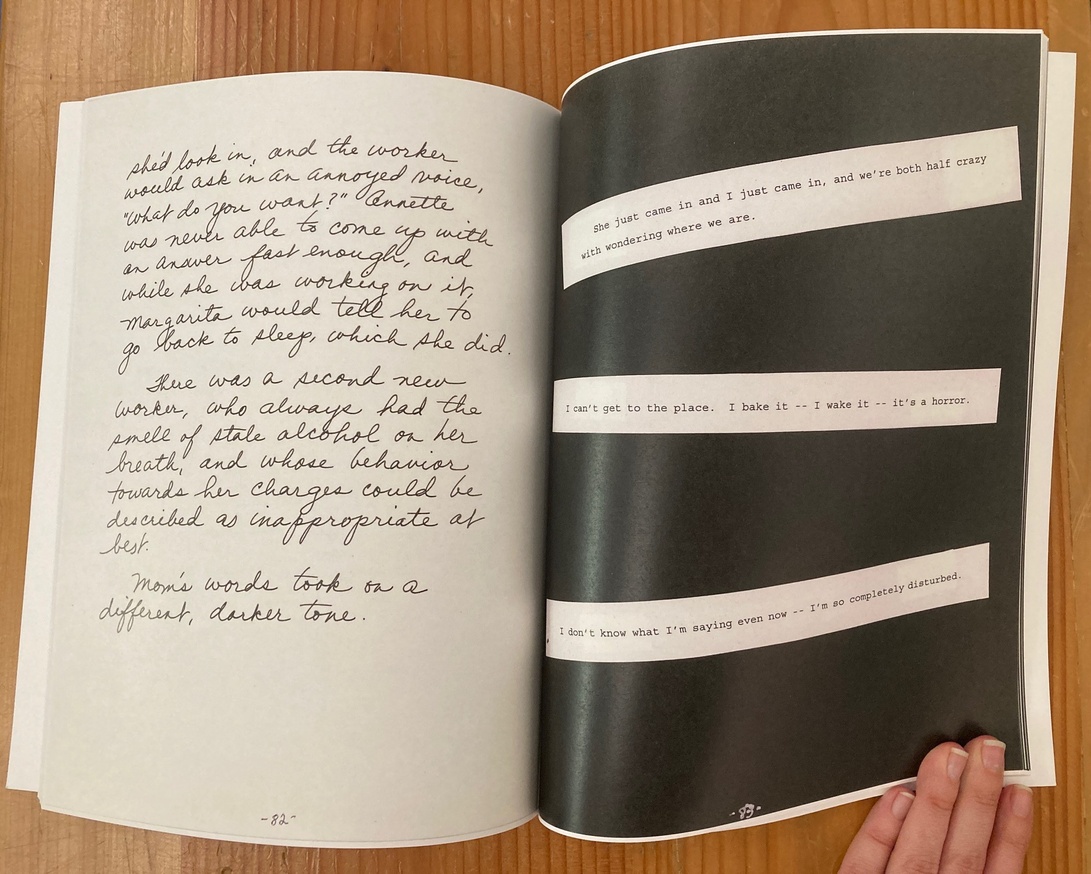 she'd look in, and the worker
would ask in an annoyed voice,
"what do you want?" Annette
was never able to come up with
an answer fast enough, and
while she was working on it,
Margarita would tell her to
go back to sleep, which she did.
There was a second new
worker, who always had the
smell of stale alcohol on her
breath, and whose behavior
towards her charges could be
described as inappropriate at
best.
Mom's words took on a
different, darker tone.
-82-
She just came in and I just came in, and we're both half crazy
with wondering where we are.
I can't get to the place.  I bake it -- I wake it -- it's a horror.
I don't know what I'm saying even now -- I'm so completely disturbed.
-83-